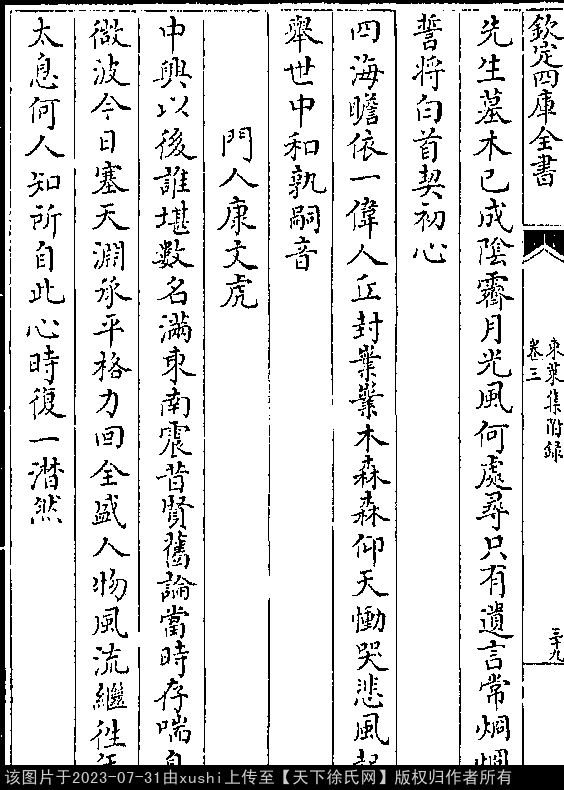 欽定四庫全書
東萊集附錄
卷三
三十九
先生墓木已成陰霽月光風何處尋只有遺言常炯炯
誓將白首契初心
四海瞻依一偉人丘封業業木森森仰天慟哭悲風起
舉世中和孰嗣音
門人康文虎
中興以後誰堪數名滿東南震昔賢舊論當時存喘息
微波今日塞天淵承平格力回全盛人物風流繼往年
太息何人知所自此心時復一潸然
该图片于2023-07-31由xushi上传至【天下徐氏网】版权归作者所有